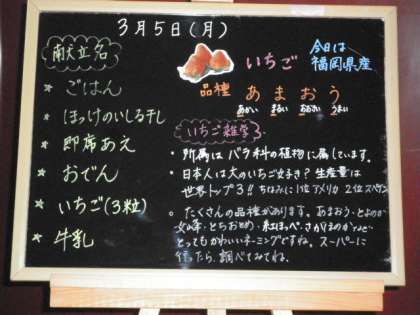 3月5日(月)
献立名
★ ごはん
★ ほっけのいしる干し
★ 即席あえ
★ おでん
★ いちご(3粒)
★ 牛乳
いちご
今日は
福岡県産
品種 あまおう
あかい まるい おおきい うまい
いちご雑学
・所属はバラ科の植物に属しています。
・日本人は大のいちご好き?生産量は
世界トップ3!!ちなみに1位アメリカ 2位スペイン
・たくさんの品種があります。あまおう・とよのか
女峰・とちおとめ・紅ほっぺ・さがほのかなど…
とってもかわいいネーミングですね。スーパーに
行ったら、調べてみてね。